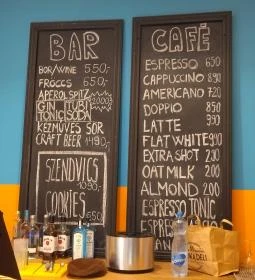 BAR
BOR/WINE 550,-
FRÖCCS 650,-
APEROL SPITZ
GIN TONIC TUBI SODA 2000,-
KÉZMŰVES SÖR
CRAFT BEER 1490,-
SZENDVICS
1090,-
COOKIES
650,-
CAFÉ
ESPRESSO 650
CAPPUCCINO 890
AMERICANO 720
DOPPIO 890
LATTE 990
FLAT WHITE 990
EXTRA SHOT 250
OAT MILK 200
ALMOND 200
ESPRESSO TONIC
ESPRESS